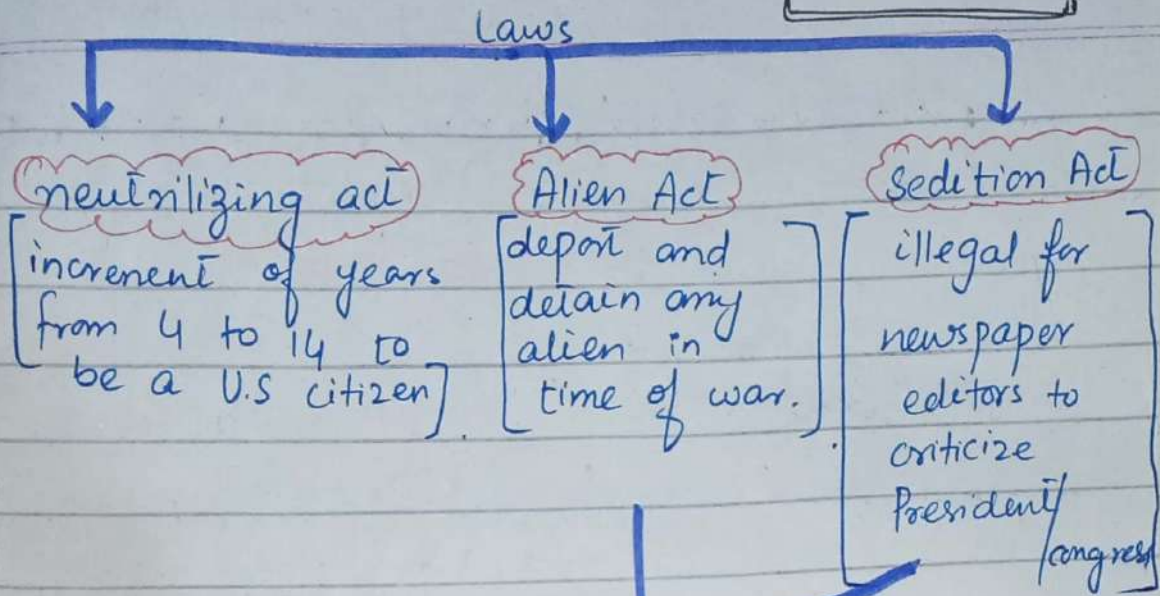 Laws
neutrilizing act
increnent of years
from 4 to 14 to
be a U.S citizen
Alien Act
deport and
detain any
alien in
time of war.
Sedition Act
illegal for
newspaper
editors to
criticize
President/
congress